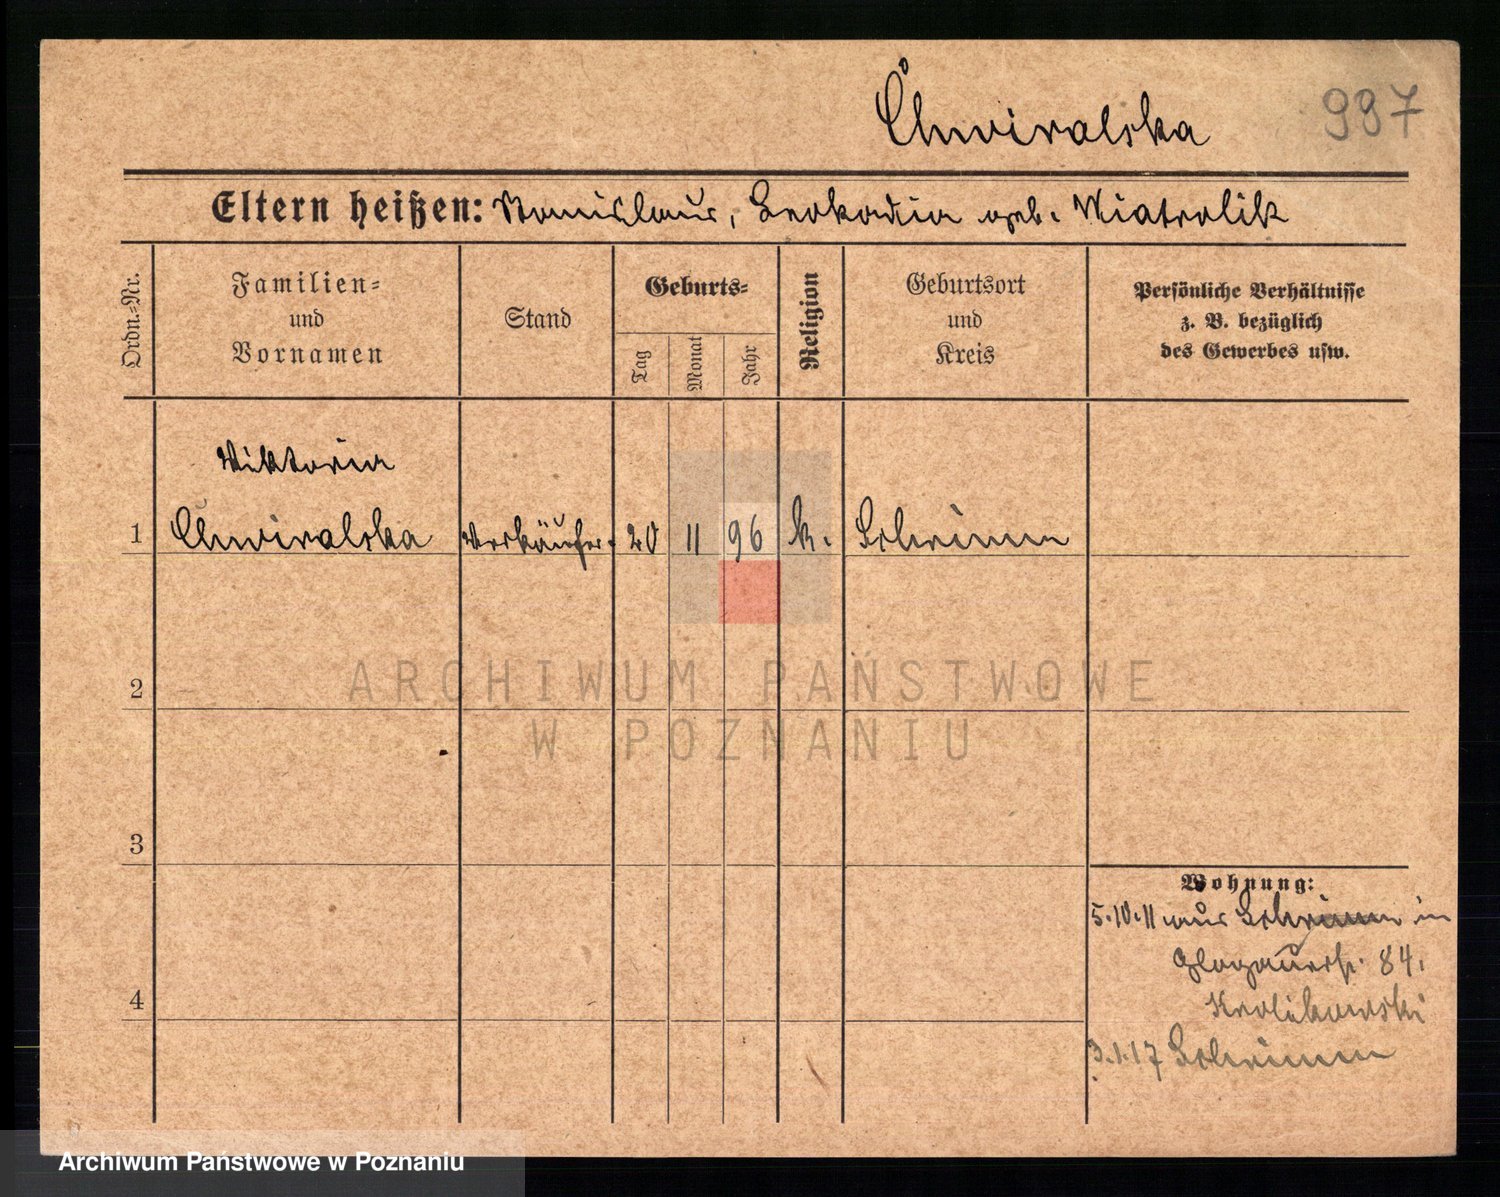 Chwiralska
987
Eltern heißen: Stanislaus, Leokadia geb. Niatrolik
Ordn.-Nr.
Familien-
und
Vornamen
Stand
Geburts-
Tag
Monat
Jahr
Religion
Geburtsort
und
Kreis
Persönliche Verhältnisse
z. B. bezüglich
des Gewerbes usw.
Viktoria
1 Chwiralska Verkäufer. 20 11 96 k. Schrimm
2
3
4
Wohnung:
5.10.11 aus Schrimm in
Glogauerstr. 84.
Krolikowski
3.1.17 Schrimm
ARCHIWUM PAŃSTWOWE
W POZNANIU
Archiwum Państwowe w Poznaniu